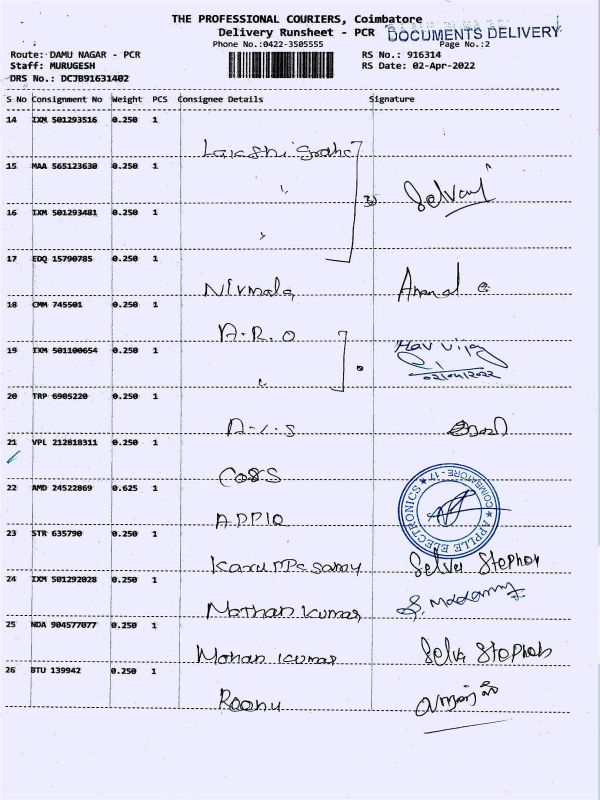 THE PROFESSIONAL COURIERS, Coimbatore
Delivery Runsheet - PCR
DOCUMENTS DELIVERY
Phone No.:0422-3505555
Page No.:2
Route: DAMU NAGAR - PCR
RS No.: 916314
Staff: MURUGESH
RS Date: 02-Apr-2022
DRS No.: DCJB91631402
S No Consignment No Weight PCS Consignee Details Signature
14 IXM 501293516 0.250 1
15 MAA 565123630 0.250 1
16 IXM 501293481 0.250 1
17 EDQ 15790785 0.250 1
Nirmala Anand
18 CMM 745501 0.250 1
A.R.O
19 IXM 501100654 0.250 1
02/04/2022
20 TRP 6905220 0.250 1
21 VPL 212018311 0.250 1
22 AMD 24522869 0.625 1
APPLE ELECTRONICS COIMBATORE - 17
23 STR 635790 0.250 1
Selva Stephen
24 IXM 501292028 0.250 1
Mathan Kumar
25 NDA 904577077 0.250 1
Mohan Kumar Selva Stephen
26 BTU 139942 0.250 1